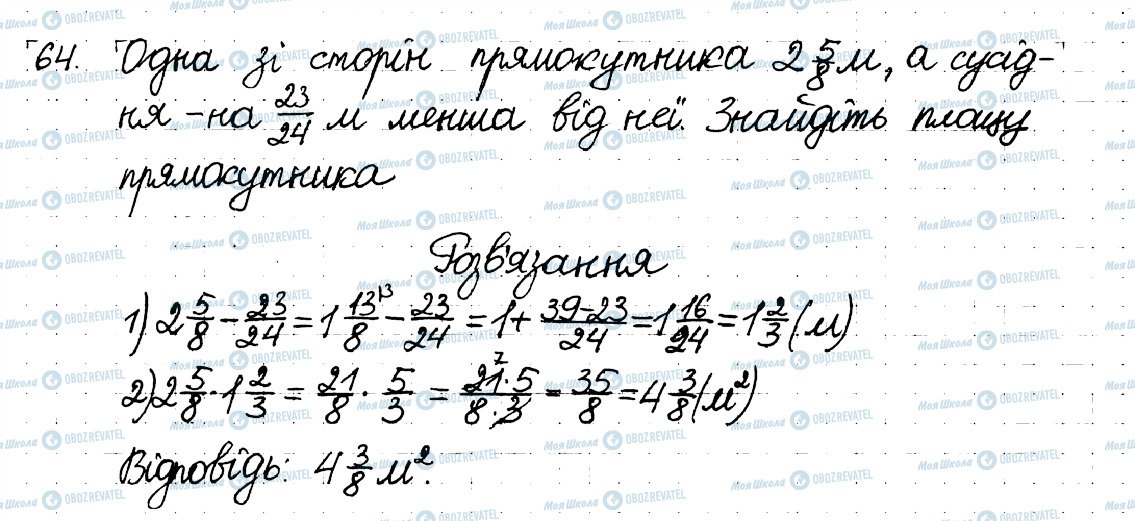 64. Одна зі сторін прямокутника 2 5/8 м, а сусід-
ня - на 23/24 м менша від неї. Знайдіть площу
прямокутника
Розв'язання
1) 2 5/8 - 23/24 = 1 13/8 - 23/24 = 1 + (39-23)/24 = 1 16/24 = 1 2/3 (м)
2) 2 5/8 · 1 2/3 = 21/8 · 5/3 = (21·5)/(8·3) = 35/8 = 4 3/8 (м²)
Відповідь: 4 3/8 м².